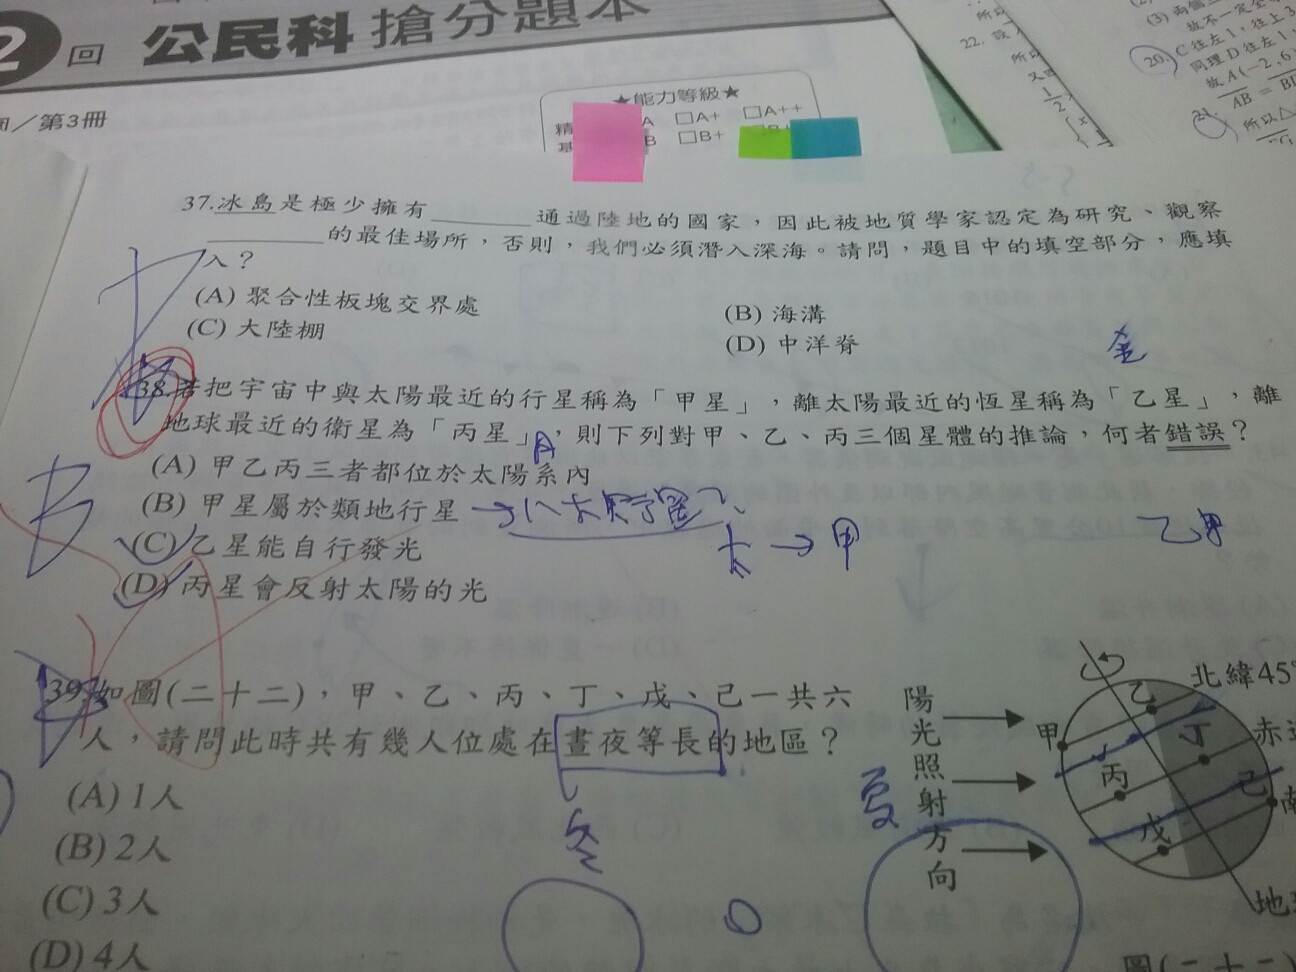 2
回
公民科 搶分題本
/第3冊
★能力等級★
A □A+ □A++
B □B+
22.
(3) 兩個
故不一定全
20. C 往左1,往上3
同理 D 往左1,
故 A(-2,6)
AB = BD
21.
所以△
37.冰島是極少擁有______通過陸地的國家,因此被地質學家認定為研究、觀察
______的最佳場所,否則,我們必須潛入深海。請問,題目中的填空部分,應填
入?
(A) 聚合性板塊交界處
(B) 海溝
(C) 大陸棚
(D) 中洋脊
金
38.若把宇宙中與太陽最近的行星稱為「甲星」,離太陽最近的恆星稱為「乙星」,離
地球最近的衛星為「丙星」,則下列對甲、乙、丙三個星體的推論,何者錯誤?
A
(A) 甲乙丙三者都位於太陽系內
B
(B) 甲星屬於類地行星 → 八大行星?
(C) 乙星能自行發光
太 → 甲
乙甲
(D) 丙星會反射太陽的光
39.如圖(二十二),甲、乙、丙、丁、戊、己一共六
人,請問此時共有幾人位處在晝夜等長的地區?
(A) 1人
(B) 2人
(C) 3人
(D) 4人
冬
夏
陽光照射方向
北緯45°
甲
乙
丙
丁
戊
己
赤道
南
圖(二十二)